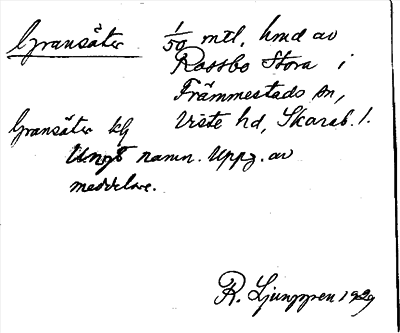 Gransäter 1/50 mtl, hmd av
Rassbo Stora i
Främmestads sn,
Viste hd, Skarab. l.
Gransäter kg
Ungt namn. Uppg. av
meddelare.
R. Ljunggren 1929